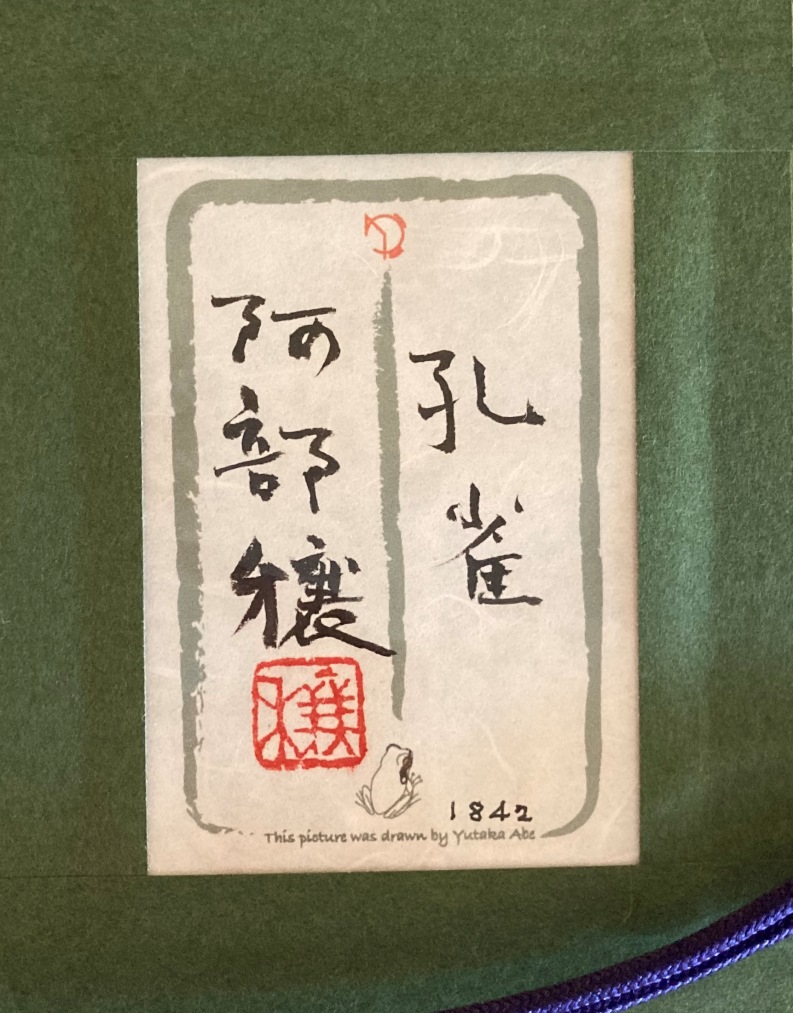 孔雀
阿部穰
穰
1842
This picture was drawn by Yutaka Abe